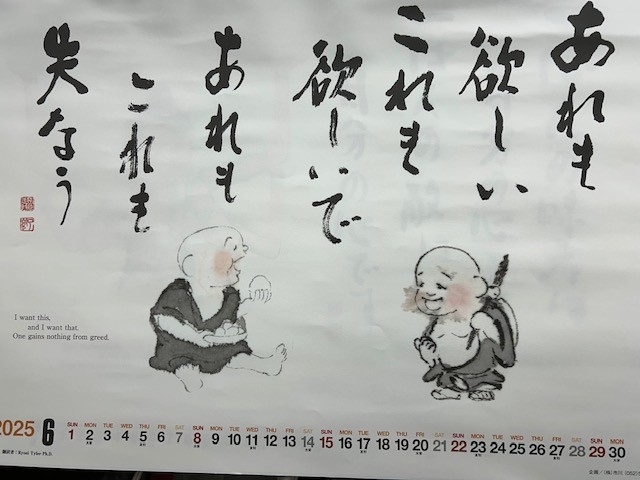 あれも
欲しい
これも
欲しいで
あれも
これも
失なう
I want this,
and I want that.
One gains nothing from greed.
2025 6
SUN MON TUE WED THU FRI SAT SUN MON TUE WED THU FRI SAT SUN MON TUE WED THU FRI SAT SUN MON TUE WED THU FRI SAT SUN MON
1 2 3 4 5 6 7 8 9 10 11 12 13 14 15 16 17 18 19 20 21 22 23 24 25 26 27 28 29 30
翻訳者:Ryuei Tyler Ph.D.